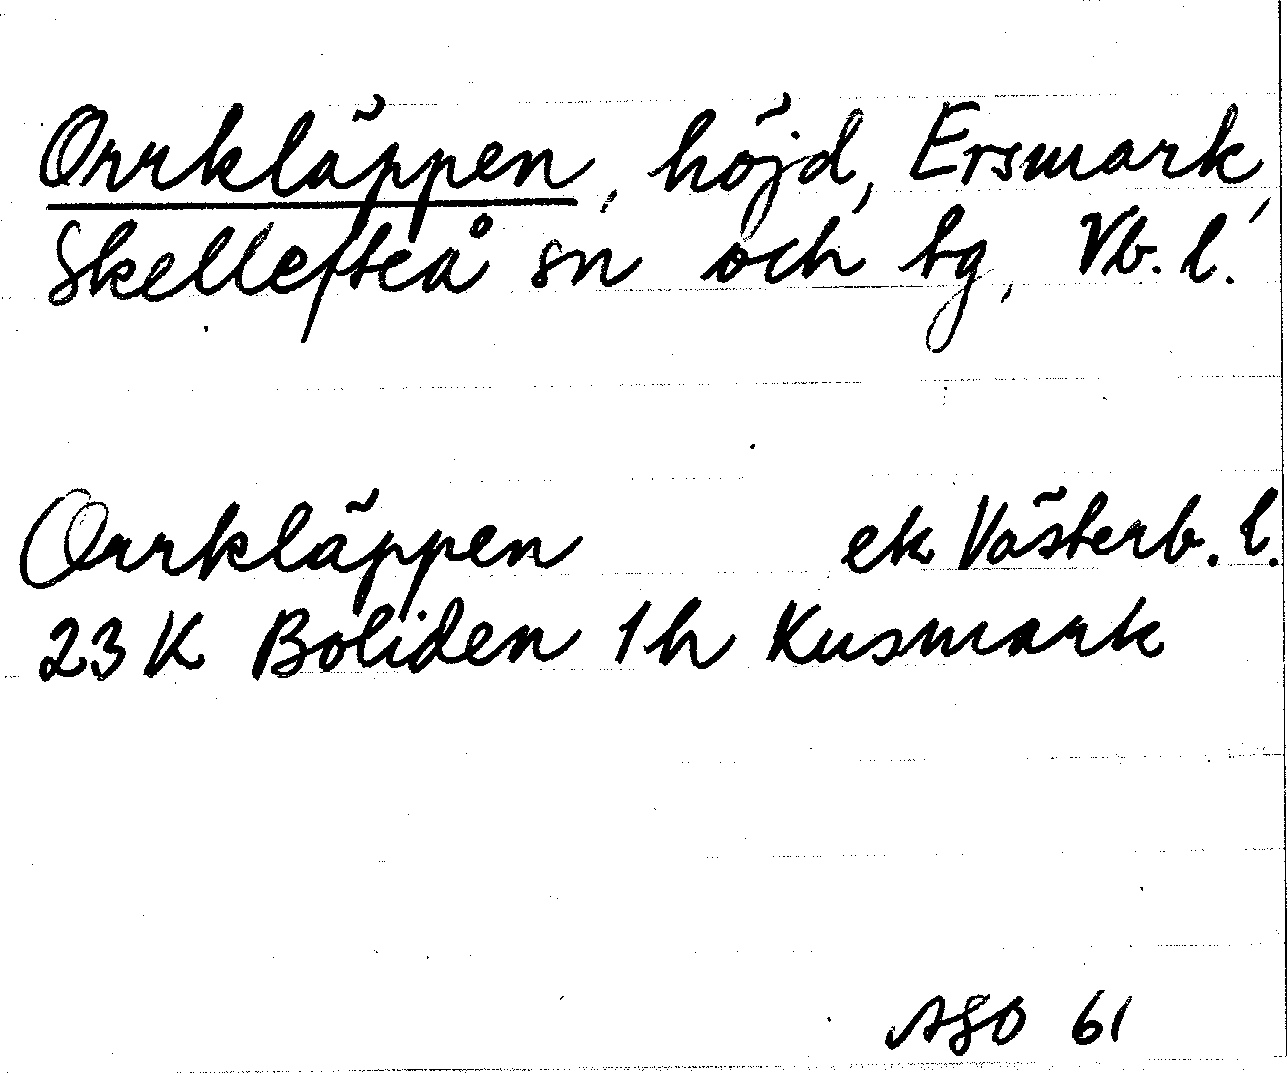 Orrkläppen, höjd, Ersmark,
Skellefteå sn och tg, Vb. l.
Orrkläppen ek Västerb. l.
23 K Boliden 1 h Kusmark
ASO 61